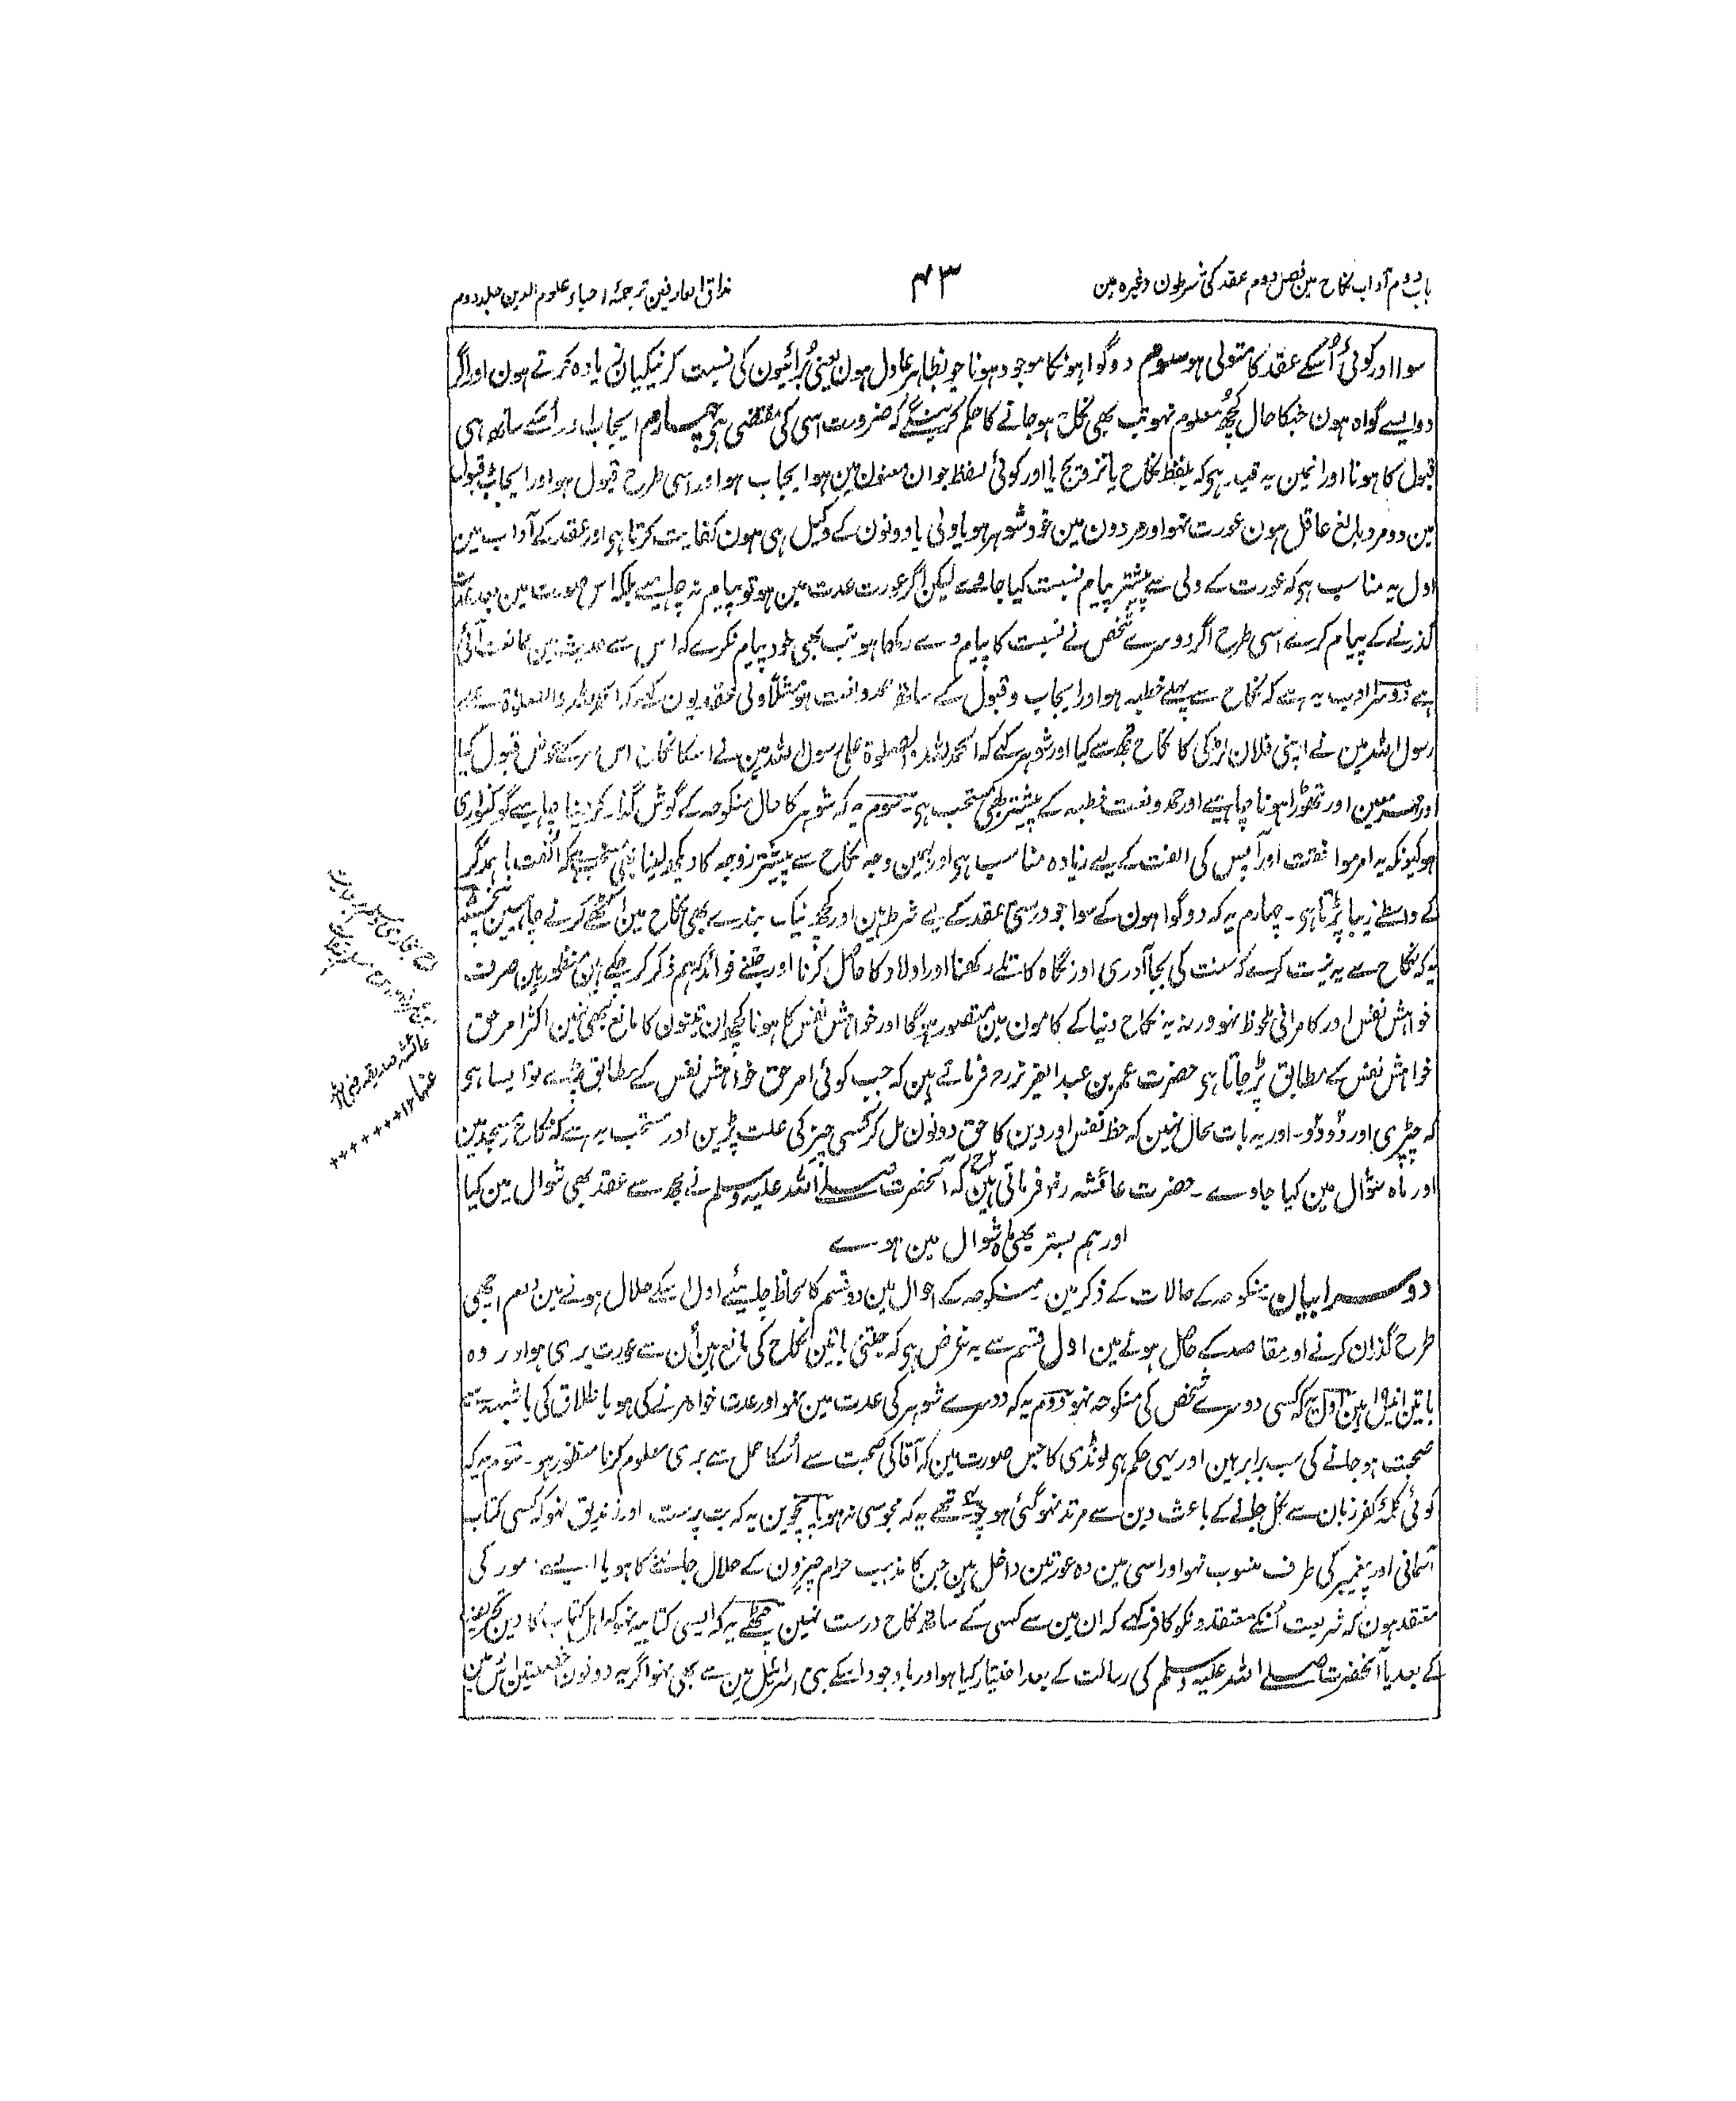 باب دوم آداب نکاح مین فصل دوم عقد کی شرطون وغیرہ مین
۴۳
مذاق العارفین ترجمۂ احیاء علوم الدین جلد دوم
سوا اور کوئی اُسکے عقد کا متولی ہو سوم دو گواہونکا موجود ہونا جو بظاہر عادل ہون یعنی بُرائیون کی نسبت کر نیکیان زیادہ کرتے ہون اور اگر
دو ایسے گواہ ہون جنکا حال کچھ معلوم نہو تب بھی نکاح ہو جانے کا حکم کرینگے کہ ضرورت اسی کی مقتضی ہی چہارم ایجاب اور اُسکے ساتھ ہی
قبول کا ہونا اور انمین یہ قید ہی کہ بلفظ نکاح یا تزویج یا اور کوئی لفظ جو ان معنون مین ہو ایجاب ہو اور اسی طرح قبول ہو اور ایجاب قبول
مین دو مرد بالغ عاقل ہون عورت نہو اور مردون مین خود شوہر ہو یا ولی یا دونون کے وکیل ہی ہون کفایت کرتا ہی اور عقد کے آداب مین
اول یہ مناسب ہی کہ عورت کے ولی سے پیشتر پیام نسبت کیا جاوے لیکن اگر عورت عدت مین ہو تو پیام نہ چاہیے بلکہ اس صورت مین بعد عدت
گذرنے کے پیام کرے اسی طرح اگر دوسرے شخص نے نسبت کا پیام دے رکھا ہو تب بھی خود پیام نکرے کہ اس سے حدیث مین ممانعت آئی
ہے دوسرا ادب یہ ہے کہ نکاح سے پہلے خطبہ ہو اور ایجاب و قبول کے ساتھ حمد و نعت ہو مثلاً ولی عقد یون کہے کہ الحمد للہ والصلوۃ علے
رسول اللہ مین نے اپنی فلان لڑکی کا نکاح تجھ سے کیا اور شوہر کہے کہ الحمد للہ والصلوۃ علی رسول اللہ مین نے اسکا نکاح اس مہر کے عوض قبول کیا
اور مہر معین اور تھوڑا ہونا چاہیے اور حمد و نعت خطبہ کے پیشتر بھی مستحب ہی ۔ سوم یہ کہ شوہر کا حال منکوحہ کے گوش گذار کر دینا چاہیے گو کنواری
ہو کیونکہ یہ امر موافقت اور آپس کی الفت کے لیے زیادہ مناسب ہی اور بہمین وجہ نکاح سے پیشتر زوجہ کا دیکھ لینا بھی مستحب ہی کہ الفت باہمدگر
کے واسطے زیبا پڑتا ہی ۔ چہارم یہ کہ دو گواہون کے سوا جو درستی عقد کے لیے شرط ہین اور کچھ نیک بندے بھی نکاح مین اکٹھے کرنے چاہیین پنجم
یہ کہ نکاح سے یہ نیت کرے کہ سنت کی بجا آوری اور نگاہ کا تلے رکھنا اور اولاد کا حاصل کرنا اور جتنے فوائد کہ ہم ذکر کر چکے ہین منظور ہین صرف
خواہش نفس اور کامرانی ملحوظ نہو ورنہ یہ نکاح دنیا کے کامون مین متصور ہوگا اور خواہش نفس کا ہونا کچھ ان نیتون کا مانع بھی نہین اکثر امر حق
خواہش نفس کے مطابق پڑ جاتا ہی حضرت عمر بن عبد العزیز رح فرماتے ہین کہ جب کوئی امر حق خواہش نفس کے مطابق پڑے تو ایسا ہی
کہ چپڑی اور دو دو ۔ اور یہ بات محال نہین کہ حظ نفس اور دین کا حق دونون مل کر کسی چیز کی علت پڑین اور مستحب یہ ہے کہ نکاح مسجد مین
اور ماہ شوال مین کیا جاوے ۔ حضرت عائشہ رض فرماتی ہین کہ آنحضرت صلے اللہ علیہ وسلم نے مجھ سے عقد بھی شوال مین کیا
اور ہم بستر بھی ماہ شوال مین ہوے
دوسرا بیان منکوحہ کے حالات کے ذکر مین منکوحہ کے احوال مین دو قسم کا لحاظ چاہیے اول اسکے حلال ہونے مین دوم اچھی
طرح گذران کرنے اور مقاصد کے حاصل ہونے مین اول قسم سے یہ غرض ہی کہ جتنی باتین نکاح کی مانع ہین اُن سے عورت بری ہو اور وہ
باتین انیس ۱۹ ہین اول یہ کہ کسی دوسرے شخص کی منکوحہ نہو دوم یہ کہ دوسرے شوہر کی عدت مین نہو اور عدت خواہ مرنے کی ہو یا طلاق کی یا شبہہ سے
صحبت ہو جانے کی سب برابر ہین اور یہی حکم ہی لونڈی کا جس صورت مین کہ آقا کی صحبت سے اُسکا حمل سے بری معلوم کرنا منظور ہو ۔ سوم یہ کہ
کوئی کلمۂ کفر زبان سے نکل جانے کے باعث دین سے مرتد نہو گئی ہو چوتھے یہ کہ مجوسی نہ ہو پانچوین یہ کہ بت پرست اور زندیق نہو کہ کسی کتاب
آسمانی اور پیغمبر کی طرف منسوب نہو اور اسی مین وہ عورتین داخل ہین جن کا مذہب حرام چیزون کے حلال جاننے کا ہو یا ایسے امور کی
معتقد ہون کہ شریعت اُنکے معتقدونکو کافر کہے کہ ان مین سے کسی کے ساتھ نکاح درست نہین چھٹے یہ کہ ایسی کتابیہ نہو کہ اہل کتاب کا دین تحریف
کے بعد یا آنحضرت صلے اللہ علیہ وسلم کی رسالت کے بعد اختیار کیا ہو اور باوجود اسکے بنی اسرائیل مین سے بھی نہو اگر یہ دونون خصلتین اس مین
عائشہ صدیقہ رضی اللہ
عنہا ۱۲